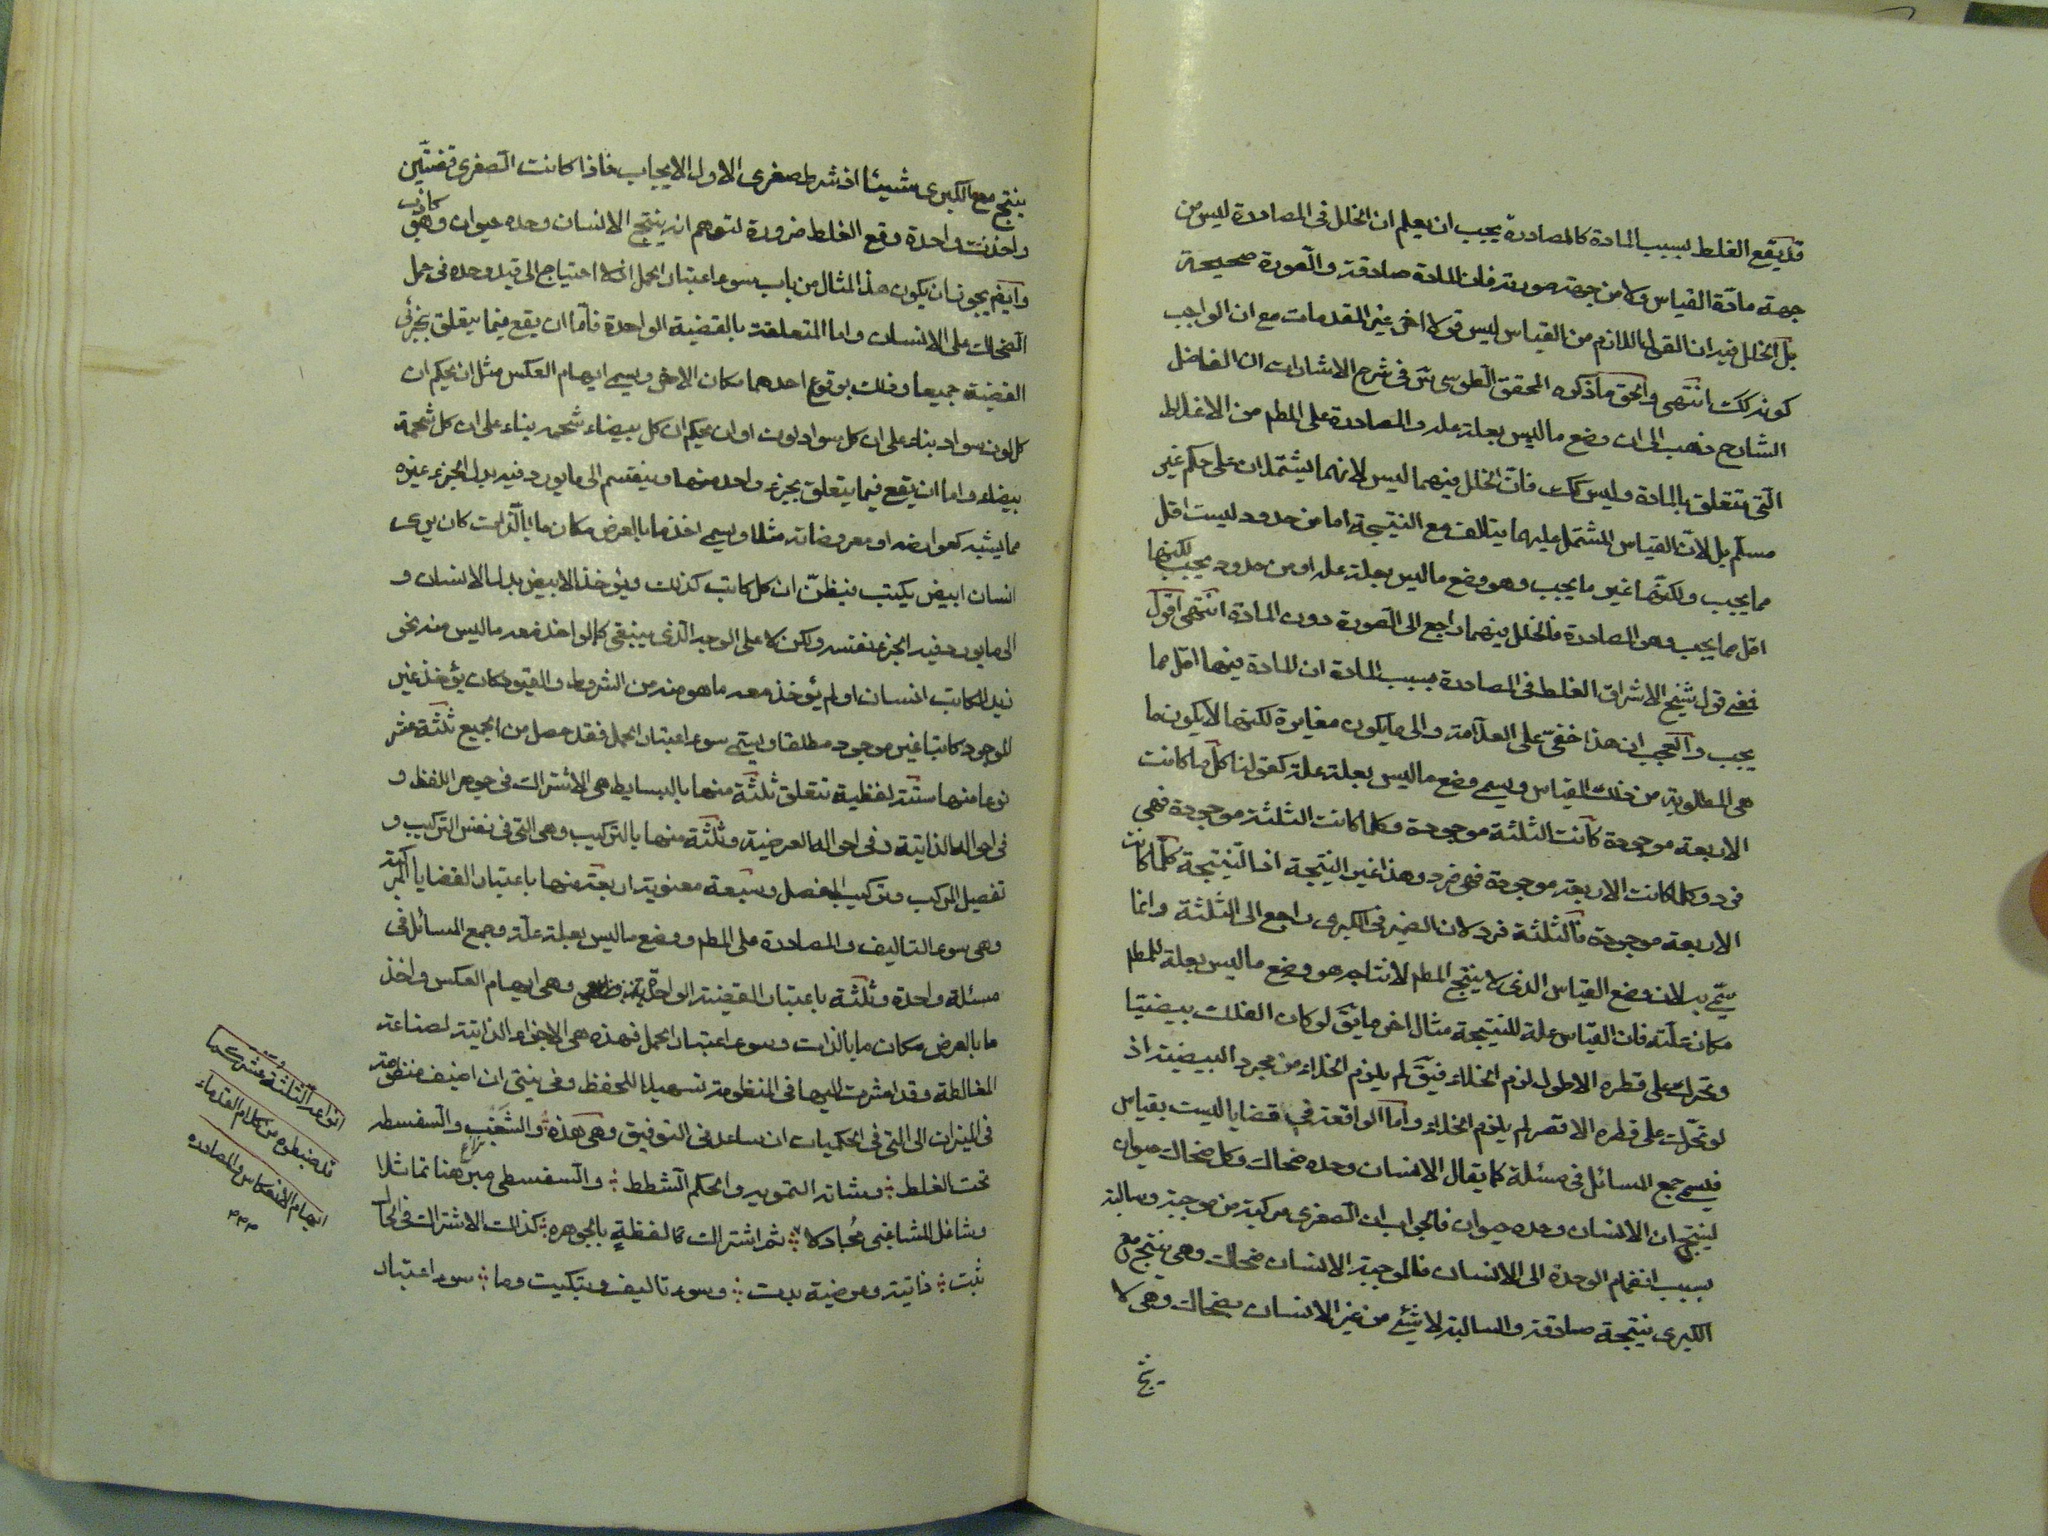 قد يقع الغلط بسبب المادة كالمصادرة يجب ان يعلم ان الخلل فى المصادرة ليس من
جهة مادّة القياس ولا من جهة صورته فان المادة صادقة والصورة صحيحة
بل الخلل فيه ان القول اللازم من القياس ليس قولا اخر غير المقدمات مع ان الواجب
كونه كك انتهى والحق ما ذكره المحقق الطوسى سّ فى شرح الاشارات ان الفاضل
الشارح ذهب الى ان وضع ما ليس بعلة علة والمصادرة على المط من الاغلاط
الّتى تتعلق بالمادة وليس كك فانّ الخلل فيهما ليس لانهما يشتملان على حكم غير
مسلّم بل لانّ القياس المشتمل عليهما يتالف مع النتيجة اما من حدود ليست اقل
مما يجب ولكنّها غير ما يجب وهو وضع ما ليس بعلة علة او من حدود يجب لكنها
اقل مما يجب وهو المصادرة فالخلل فيهما راجع الى الصورة دون المادة انتهى اقول
فمعنى قول شيخ الاشراق الغلط فى المصادرة بسبب المادة ان المادة فيها اقل مما
يجب والعجب ان هذا خفىّ على العلامة والى ما يكون مغايرة لكنها لا يكون ما
هى المطلوبة من ذلك القياس ويسمى وضع ما ليس بعلة علة كقولنا كلّما كانت
الاربعة موجودة كانت الثلثة موجودة وكلما كانت الثلثة موجودة فهى
فرد وكلما كانت الاربعة موجودة فهى فرد وهذا غير النتيجة اذ النتيجة كلّما كانت
الاربعة موجودة فالثلثة فرد لان الضمير فى الكبرى راجع الى الثلثة وانما
سمّى به لان وضع القياس الذى لا ينتج المط لانتاجه هو وضع ما ليس بعلة للمط
مكان علّته فان القياس علة للنتيجة مثال اخر ما يقّ لو كان الفلك بيضيّا
وتحرك على قطره الاطول لزم الخلاء فيقّ لم يلزم الخلاء من مجرد البيضية اذ
لو تحرّك على قطره الاقصر لم يلزم الخلاء وامّا الواقعة فى قضايا ليست بقياس
فيسمى جمع المسائل فى مسئلة كما يقال الانسان وحده ضحاك وكل ضحاك حيوان
لينتج ان الانسان وحده حيوان فالجواب ان الصغرى مركبة من موجبة وسالبة
بسبب انضمام الوحدة الى الانسان فالموجبة الانسان ضحاك وهى تنتج مع
الكبرى نتيجة صادقة والسالبة لا شئ من غير الانسان بضحاك وهى لا
ينتج مع الكبرى شيئا اذ شرط صغرى الاول الايجاب فاذا كانت الصغرى قضيّتين
كاذب
واخذت واحدة وقع الغلط ضرورة لتوهم انه ينتج الانسان وحده حيوان وهو
وايضا يجوز ان يكون هذا المثال من باب سوء اعتبار الحمل اذ لا احتياج الى قيد وحده فى حمل
الضحاك على الانسان واما المتعلقة بالقضية الواحدة فامّا ان يقع فيما يتعلق بجزئى
القضية جميعا وذلك بوقوع احدهما مكان الاخر ويسمى ايهام العكس مثل ان يحكم ان
كل لون سواد بناء على ان كل سواد لون او ان يحكم ان كل بيضاء شحمة بناء على ان كل شحمة
بيضاء واما ان يقع فيما يتعلق بجزء واحد منها وينقسم الى ما يورد فيه بدل الجزء غيره
مما يشبه كعوارضه او معروضاته مثلا ويسمى اخذ ما بالعرض مكان ما بالذات كان يرى
انسان ابيض يكتب فيظنّ ان كل كاتب كذلك ويؤخذ الابيض بدل الانسان و
الى ما يورد فيه الجزء نفسه ولكن لا على الوجه الّذى ينبغى كما لو اخذ معه ما ليس منه نحو
زيد الكاتب انسان او لم يؤخذ معه ما هو منه من الشروط والقيود كان يؤخذ غير
الموجود كاتبا غير موجود مطلقا ويسمّى سوء اعتبار الحمل فقد حصل من الجميع ثلثة عشر
نوعا منها ستّة لفظية تتعلق ثلثة منها بالبسايط هى الاشتراك فى جوهر اللفظ و
فى احواله الذاتية وفى احواله العرضية وثلثة منها بالتركيب وهى التى فى نفس التركيب و
تفصيل المركب وتركيب المفصل وسبعة معنوية اربعة منها باعتبار القضايا المركبة
وهى سوء التاليف والمصادرة على المط ووضع ما ليس بعلة علّة وجمع المسائل فى
مسئلة واحدة وثلثة باعتبار القضية الواحدة وهى ايهام العكس واخذ
ما بالعرض مكان ما بالذات وسوء اعتبار الحمل فهذه هى الاجزاء الذاتية لصناعة
المغالطة وقد اشرت اليها فى المنظومة تسهيلا للحفظ وفى نيتى ان اضيف منظومة
فى الميزان الى التى فى الحكميات ان ساعدنى التوفيق وهى هذه والشغب والسفسطه
تحت الغلط ؛ وشانه التمويه والحكم الشطط ؛ والسفسطى مبرهنا تماثلا
وشاغل المشاغبى مُجادلا ؛ ثم اشتراك كالفظةٍ بالجوهره ؛ كذاك الاشتراك فى الحال
ثبت ؛ ذاتية وعرضية بدت ؛ وسوء تاليف وتبكيت وما ؛ سوء اعتبار
انواعه الثلثة عشر كما
قد ضبطوه من كلام القدماء
ايهام الانعكاس والمصادره